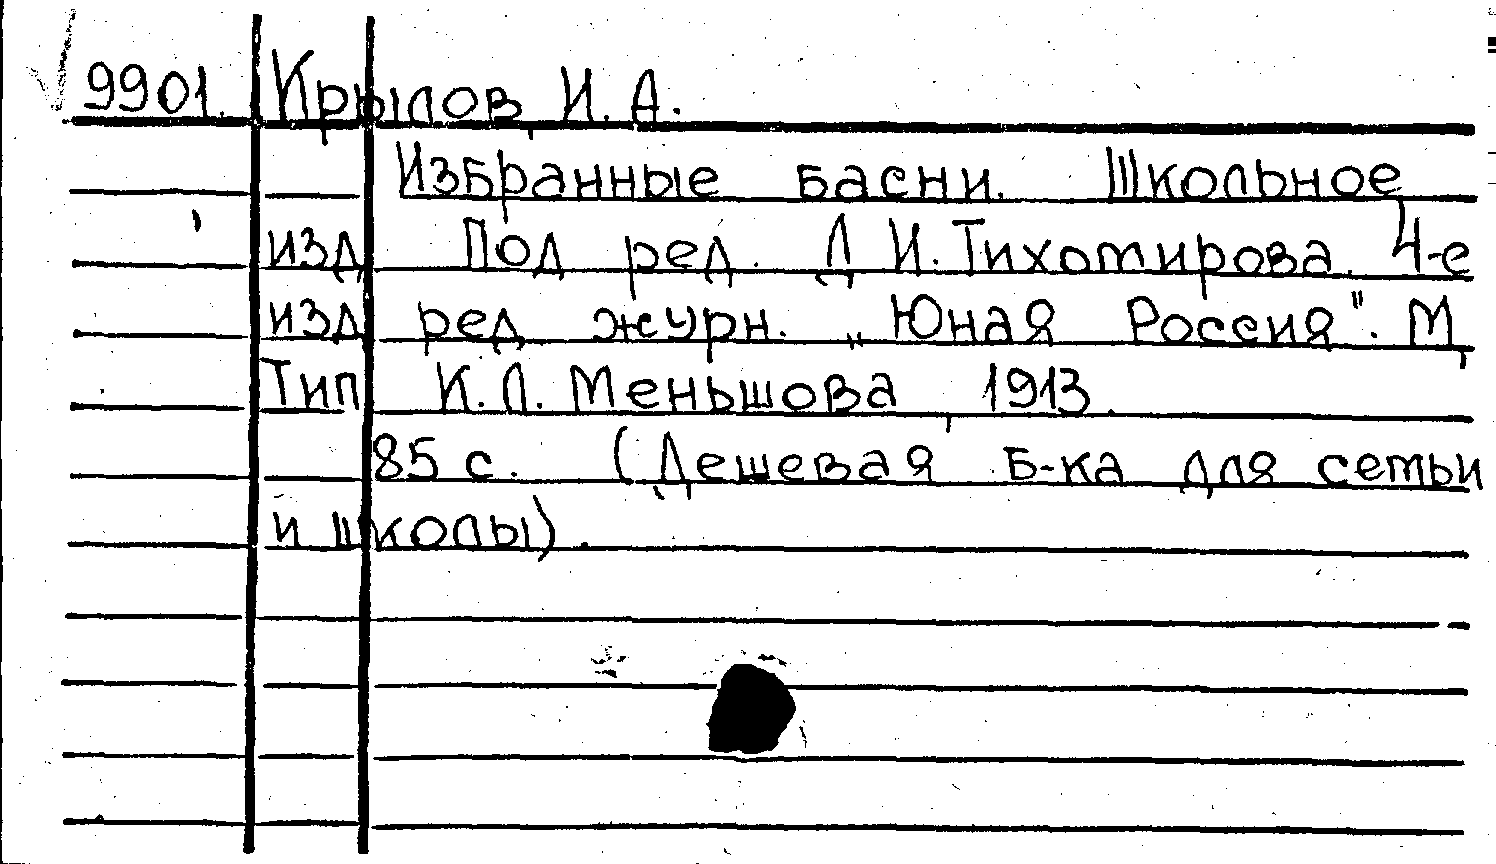 9901. Крылов, И. А.
Избранные басни. Школьное
изд. Под ред. Д. И. Тихомирова. 4-е
изд. ред. журн. „Юная Россия". М.,
Тип. К. Л. Меньшова, 1913.
85 с. (Дешевая б-ка для семьи
и школы).